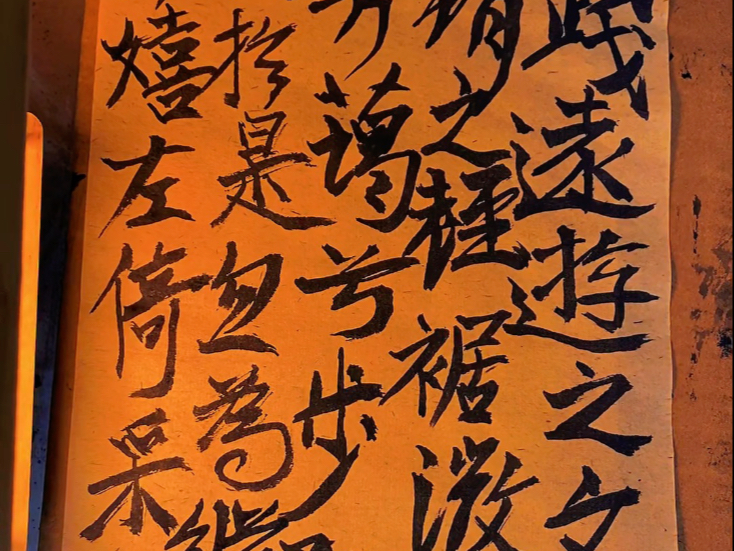 踐遠遊之文
綃之輕裾微
芳藹兮步
於是忽為縱
嬉左倚采